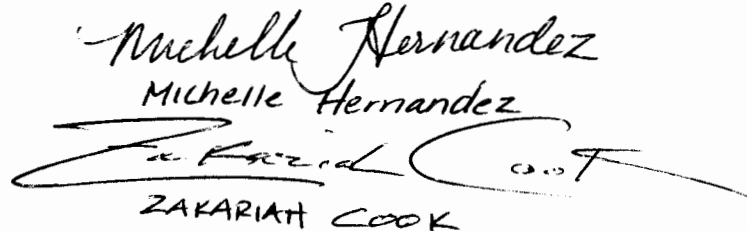 Michelle Hernandez
Michelle Hernandez
Zakariah Cook
ZAKARIAH COOK